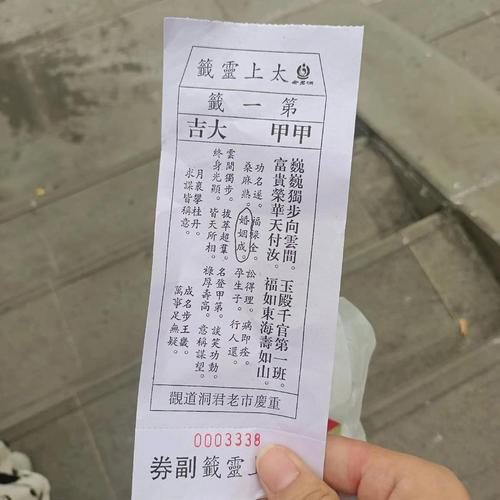 太上靈籤
第一籤
甲甲 大吉
巍巍獨步向雲間。玉殿千官第一班。
富貴榮華天付汝。福如東海壽如山。
功名遂。福祿全。訟得理。病即痊。
桑麻熟。婚姻成。孕生子。行人還。
雲間獨步。拔萃超羣。名登甲第。談笑功勳。
終身光顯。皆天所相。祿厚壽高。意稱謀望。
月裏攀桂丹。成名步王畿。
求謀皆稱意。萬事足無疑。
重慶市老君洞道觀
0003338
上靈籤副券